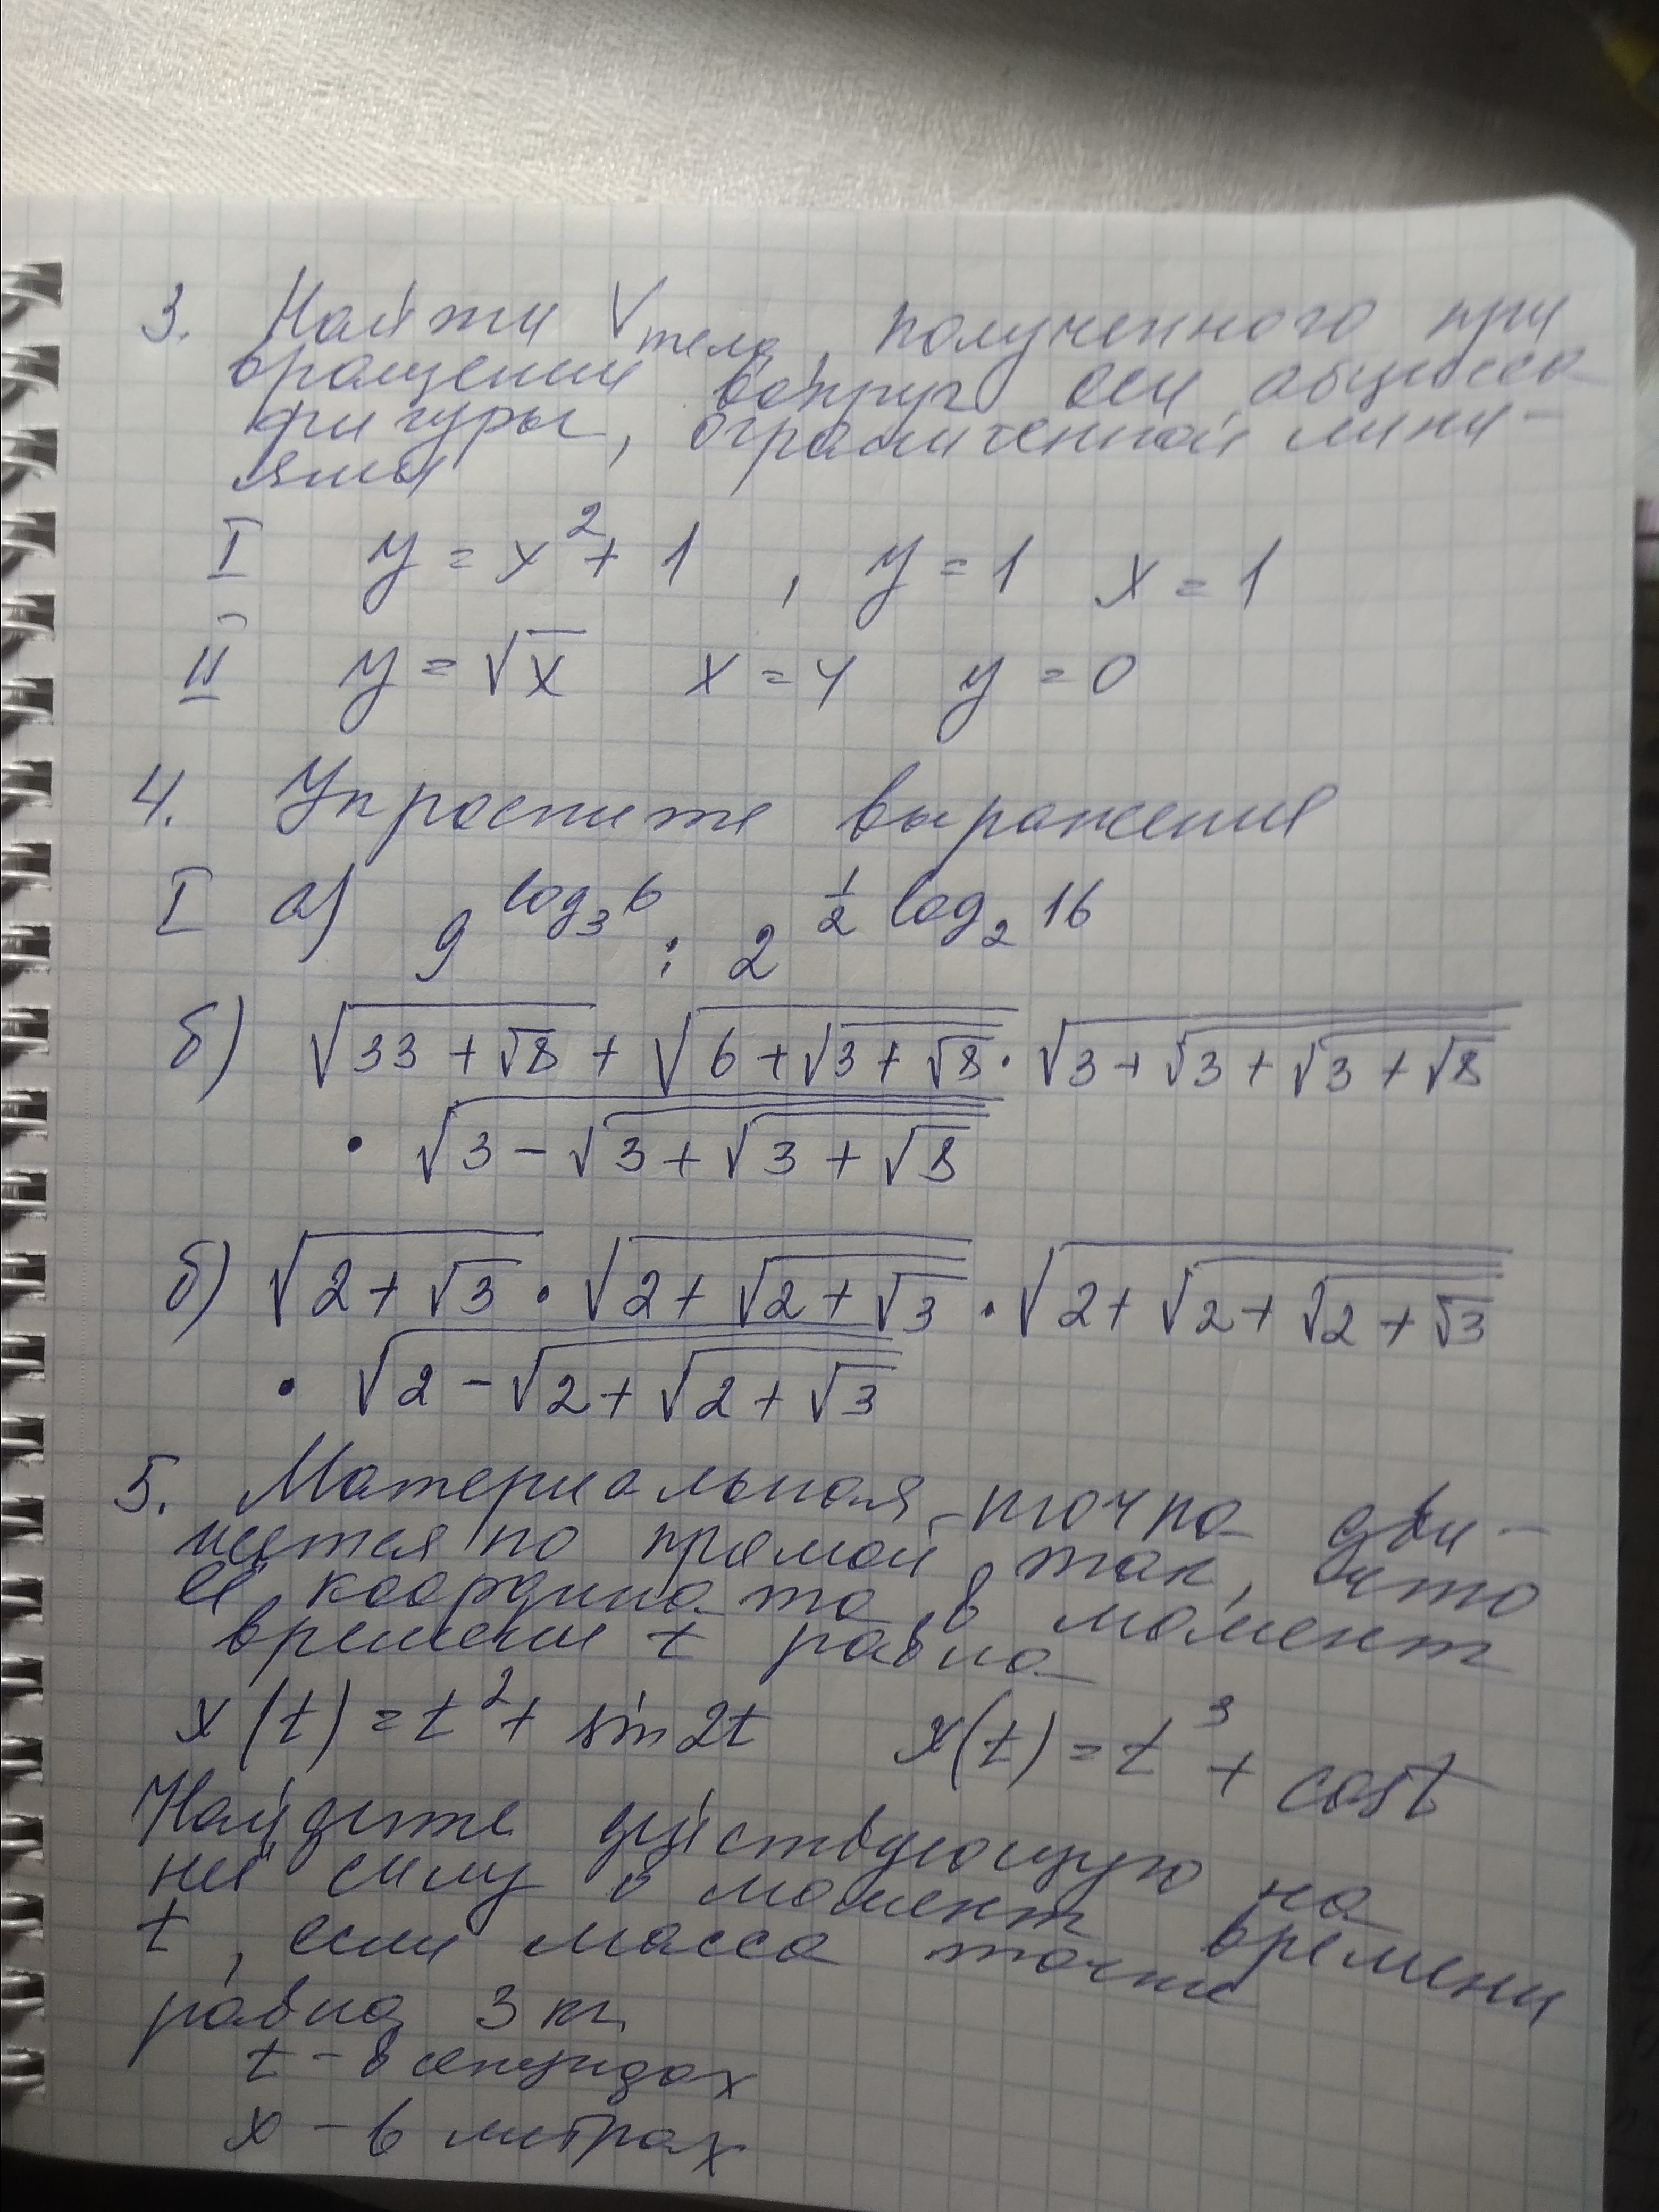 3. Найти Vтела, полученного при
вращении вокруг оси абцисса
фигуры, ограниченной лини-
ями
I y = x² + 1 , y = 1 x = 1
II y = √x x = 4 y = 0
4. Упростите выражения
I а) 9^(log₃6) : 2^(½ log₂ 16)
б) √(33 + √8) + √(6 + √(3 + √8)) · √(3 + √(3 + √(3 + √8)))
· √(3 - √(3 + √(3 + √8)))
б) √(2 + √3) · √(2 + √(2 + √3)) · √(2 + √(2 + √(2 + √3)))
· √(2 - √(2 + √(2 + √3)))
5. Материальная точка дви-
жется по прямой так, что
её координата в момент
времени t равна
x(t) = t² + sin2t x(t) = t³ + cost
Найдите действующую на
неё силу в момент времени
t, если масса точки
равна 3 кг
t - в секундах
x - в метрах